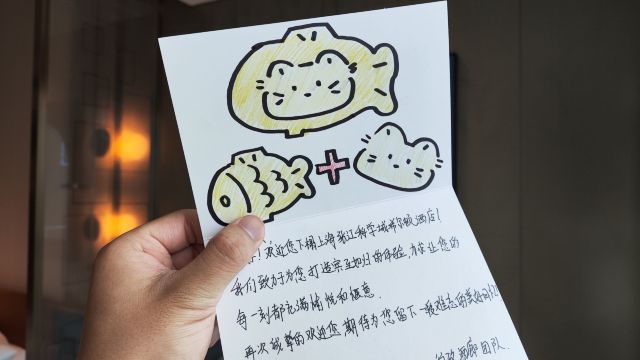 ！欢迎您下榻上海张江科学城希尔顿酒店！
我们致力于为您打造宾至如归的体验，让您的
每一刻都充满愉悦和惬意.
再次诚挚的欢迎您，期待为您留下一段难忘的美好
团队.